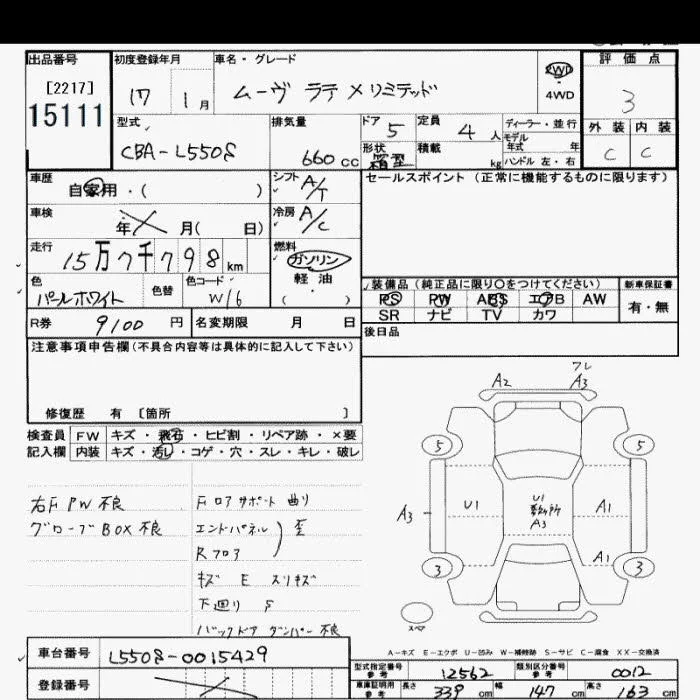 出品番号
[2217]
15111
初度登録年月
17 1月
車名・グレード
ムーヴ ラテ X リミテッド
2WD
4WD
評価点
3
外装 内装
C C
型式
CBA-L550S
排気量
660cc
ドア 5
形状 箱型
定員 4人
積載 kg
ディーラー・並行
モデル年式 年
ハンドル 左・右
車歴
自家用・( )
シフト A/T
セールスポイント (正常に機能するものに限ります)
車検
年 月( 日)
冷房 A/C
走行
15万7千798km
燃料
ガソリン
軽油
( ・ )
色
パールホワイト
色替
色コード
W16
装備品 (純正品に限り○をつけてください)
PS PW ABS エアB AW
SR ナビ TV カワ
新車保証書
有・無
R券 9100円
名変期限 月 日
後日品
注意事項申告欄 (不具合内容等は具体的に記入して下さい)
修復歴 有 〔箇所 〕
検査員記入欄
FW キズ・飛石・ヒビ割・リペア跡・×要
内装 キズ・汚れ・コゲ・穴・スレ・キレ・破レ
右F PW 不良
グローブBOX 不良
Fロアサポート 曲り
エンドパネル
Rフロア
歪
キズ E スリキズ
下廻り S
バックドア ダンパー 不良
A2
フレ
A3
5
5
A3
U1
U1
A3
A1
A1
3
3
スペア
A-キズ E-エクボ U-凹み W-補修跡 S-サビ C-腐食 XX-交換済
車台番号 L550S-0015429
登録番号
型式指定番号 参考 12562
類別区分番号 参考 0012
車庫証明用 参考 長さ 339cm 幅 147cm 高さ 163cm